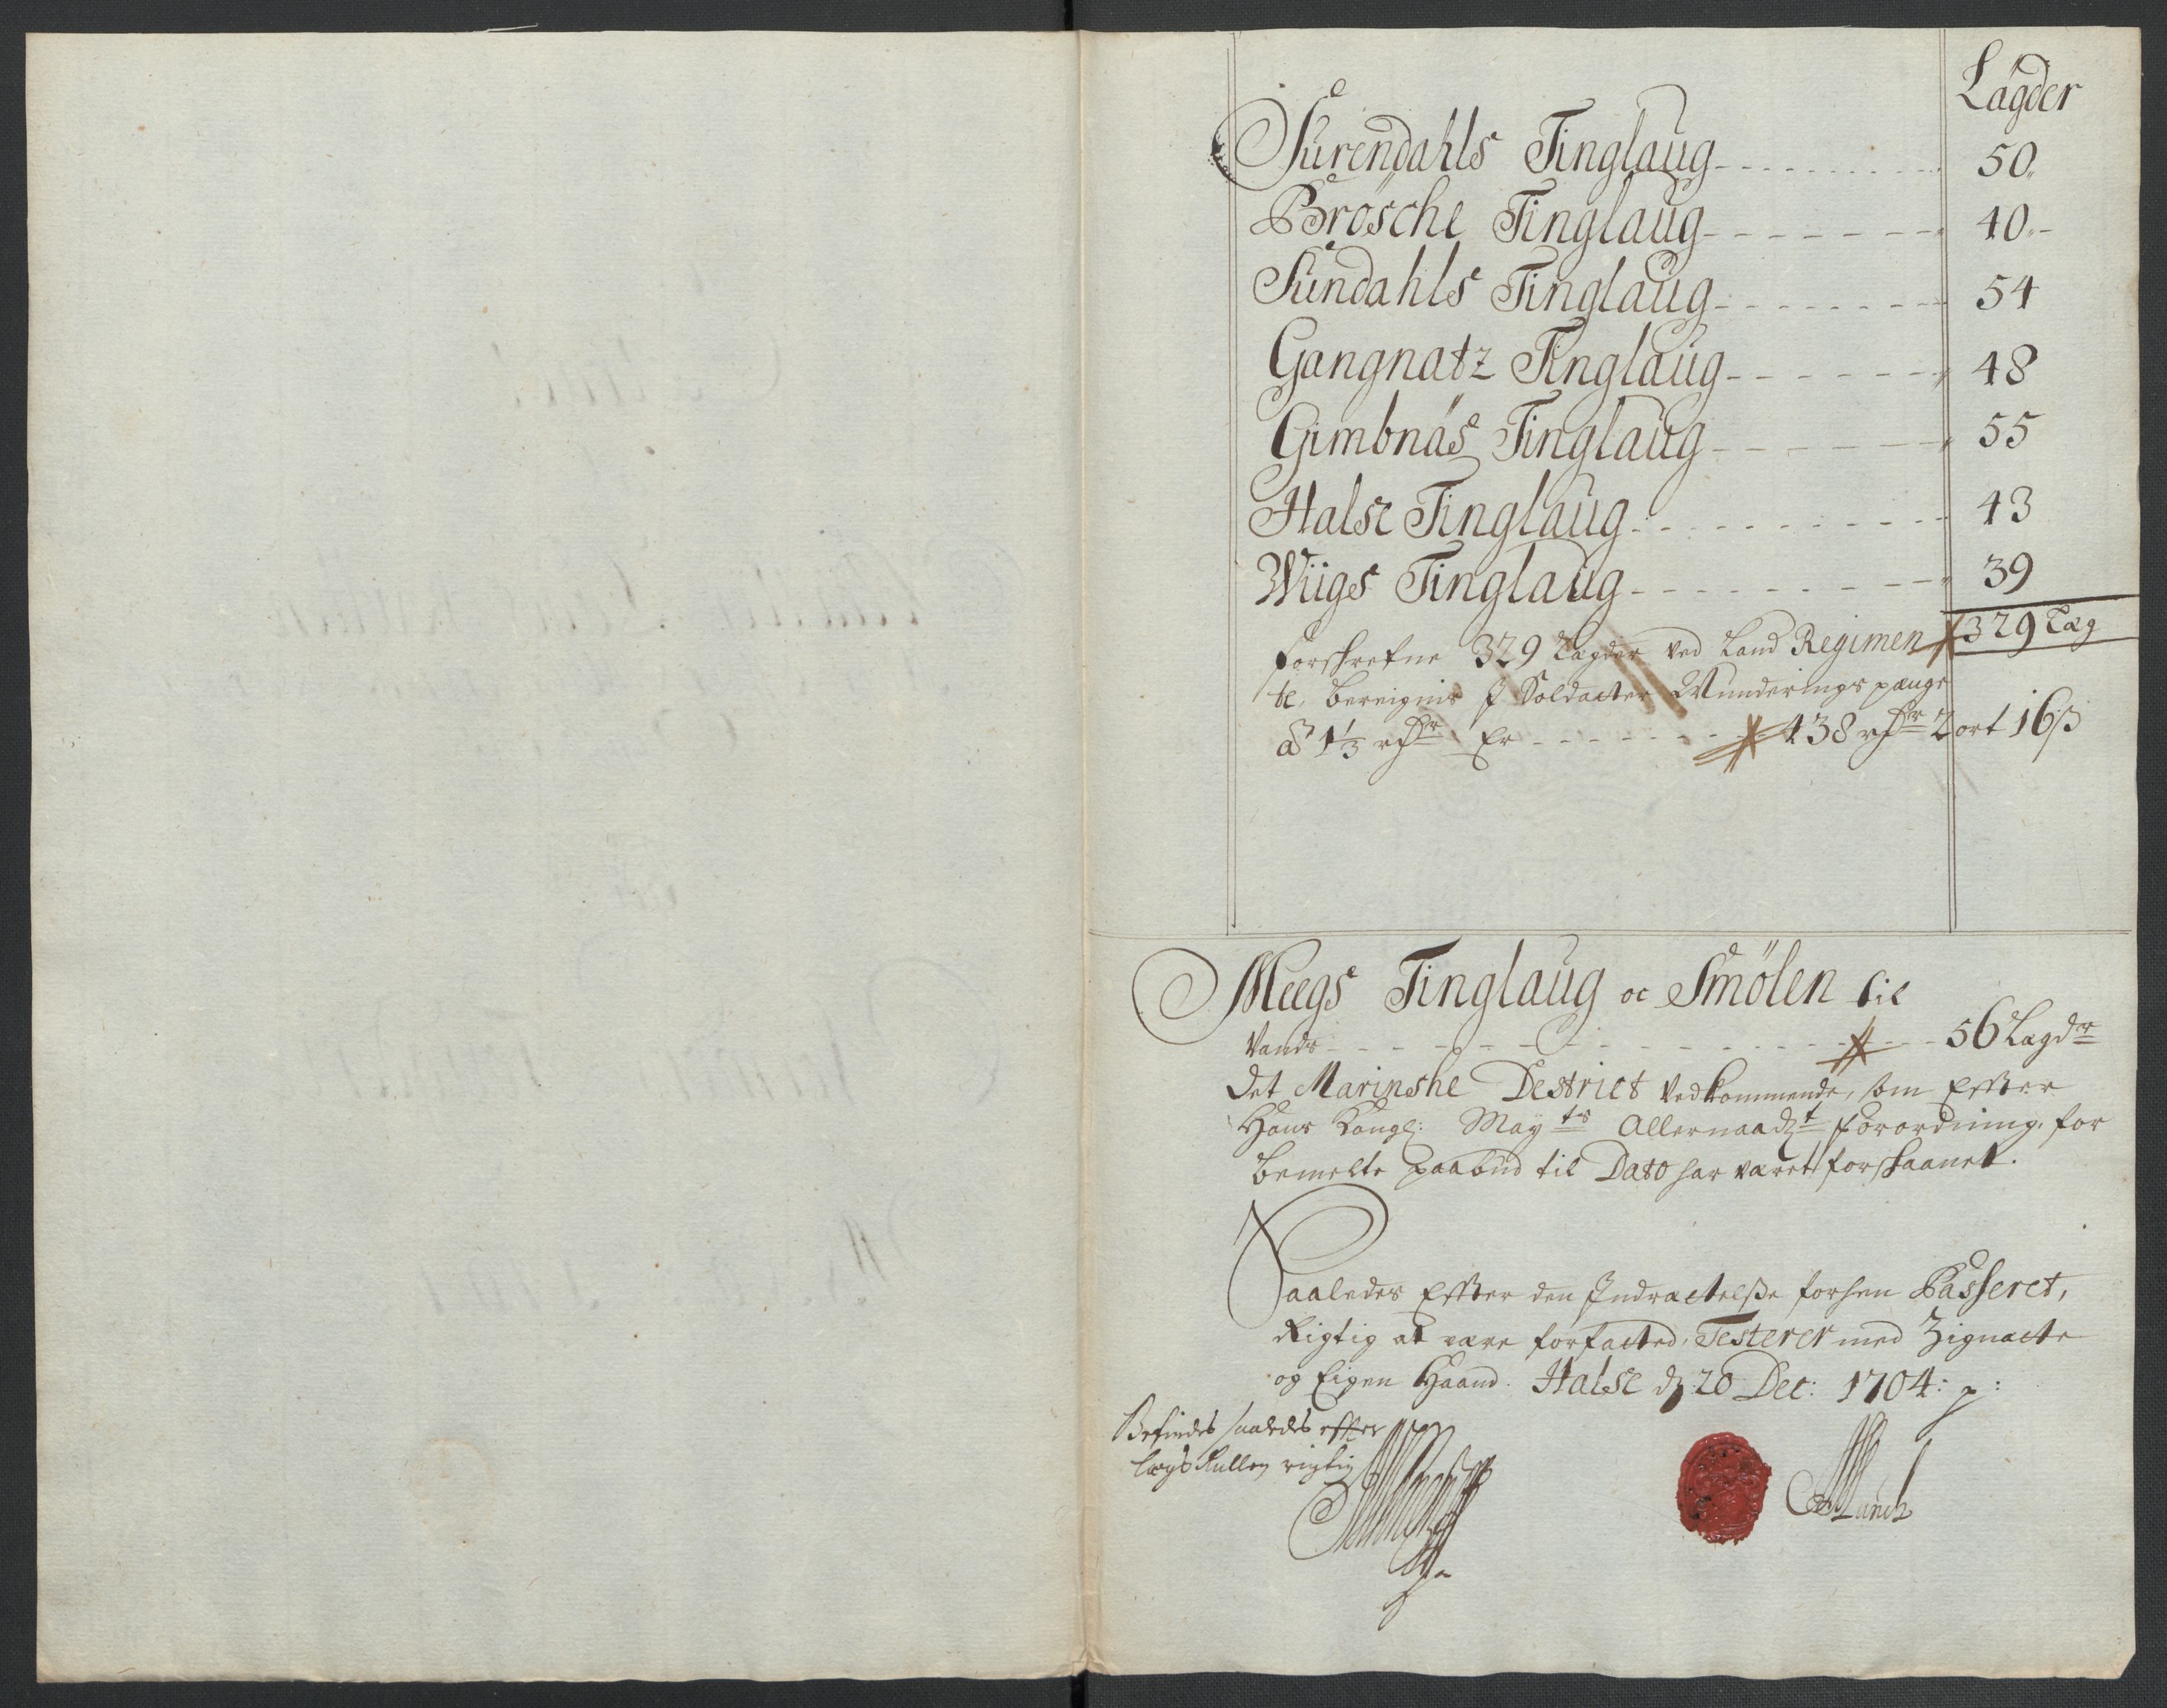 Lägder
Sùrendahls Tinglaùg 50
Brösche Tinglaùg 40
Sùndahls Tinglaùg 54
Gangnatz Tinglaùg 48
Gimbnäs Tinglaùg 55
Halse Tinglaùg 43
Wiigs Tinglaùg 39
forskrefne 329 Lægder ved Land Regimen 329 Læg
te, bereignis J Soldater Munderings penge
â 1⅓ rdr Er 438 rdr 2 ort 16 s
Meegs Tinglaùg oc Smölen til
Vands 56 Lægdr
det Marinshe Destrict vedkommende, som Effter
Hans Kongl: Mayts Allernaadt forordning, for
bemelte paabud til Dato har været forskaanet.
Saaledes Effter den Indrættelße forhen Passeret,
Rigtig at være forfatted, Testerer med Zignette
og Eigen Haand. Halse d 20 Dec: 1704: p:
Befindes saaledes effter
lægs Rullen rigtig
Munch